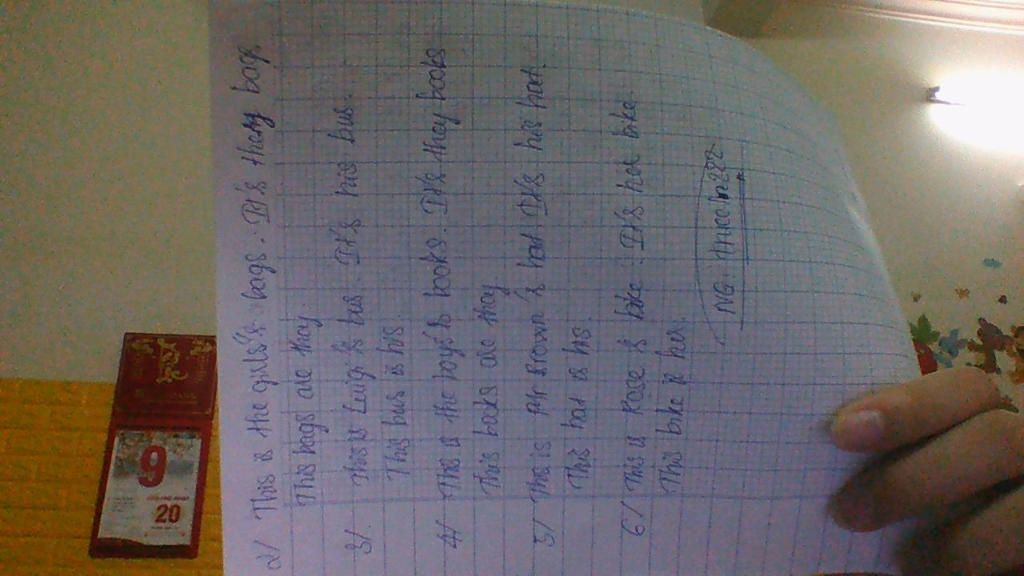 2/ This is the girls's bags. It's they bags
This bags are they
3/ This is Luigi's bus. It's his bus.
This bus is his.
4/ This is the boys's books. It's they books
This books are they
5/ This is Mr Brown's hat. It's his hat.
This hat is his
6/ This is Rose's bike. It's her bike.
This bike is her.
9
20